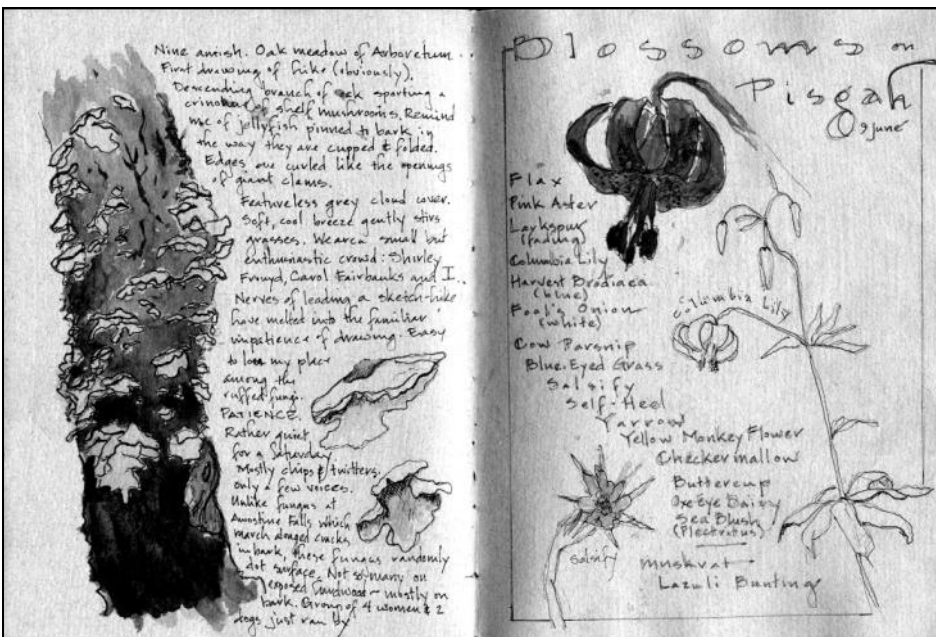 Nine amish. Oak meadow of Arboretum.
First drawing of hike (obviously).
Descending branch of oak sporting a
of shelf mushrooms. Remind
me of jellyfish pinned to bark in
the way they are cupped & folded.
Edges are curled like the openings
of giant clams.
Featureless grey cloud cover.
Soft, cool breeze gently stirs
grasses. We are a small but
enthusiastic crowd: Shirley
Carol Fairbanks and I.
Nerves of leading a sketch-hike
have melted into the familiar
impatience of drawing. Easy
to lose my place
among the
ruffed fungi.
PATIENCE.
Rather quiet
for a Saturday
Mostly chips & twitters.
Only a few voices.
Unlike fungus at
Falls which
march along cracks
in bark, these fungus randomly
dot surface. Not so many on
exposed ~ mostly on
bark. Group of 4 women & 2
dogs just ran by
Blossoms on
Pisgah
9 June
Flax
Pink Aster
Larkspur
(fading)
Columbia Lily
Harvest Brodiaea
(blue)
Fool's Onion
(white)
Cow Parsnip
Blue-Eyed Grass
Salsify
Self-Heal
Yarrow
Yellow Monkey Flower
Checkermallow
Buttercup
Oxe Eye Daisy
Sea Blush
(Plectritus)
muskrat
Lazuli Bunting
Columbia Lily
Salsify